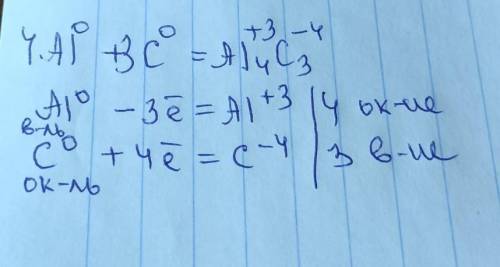 4Al⁰ + 3C⁰ = Al₄⁺³C₃⁻⁴
Al⁰ − 3ē = Al⁺³ | 4 ок-ие
в-ль
C⁰ + 4ē = C⁻⁴ | 3 в-ие
ок-ль